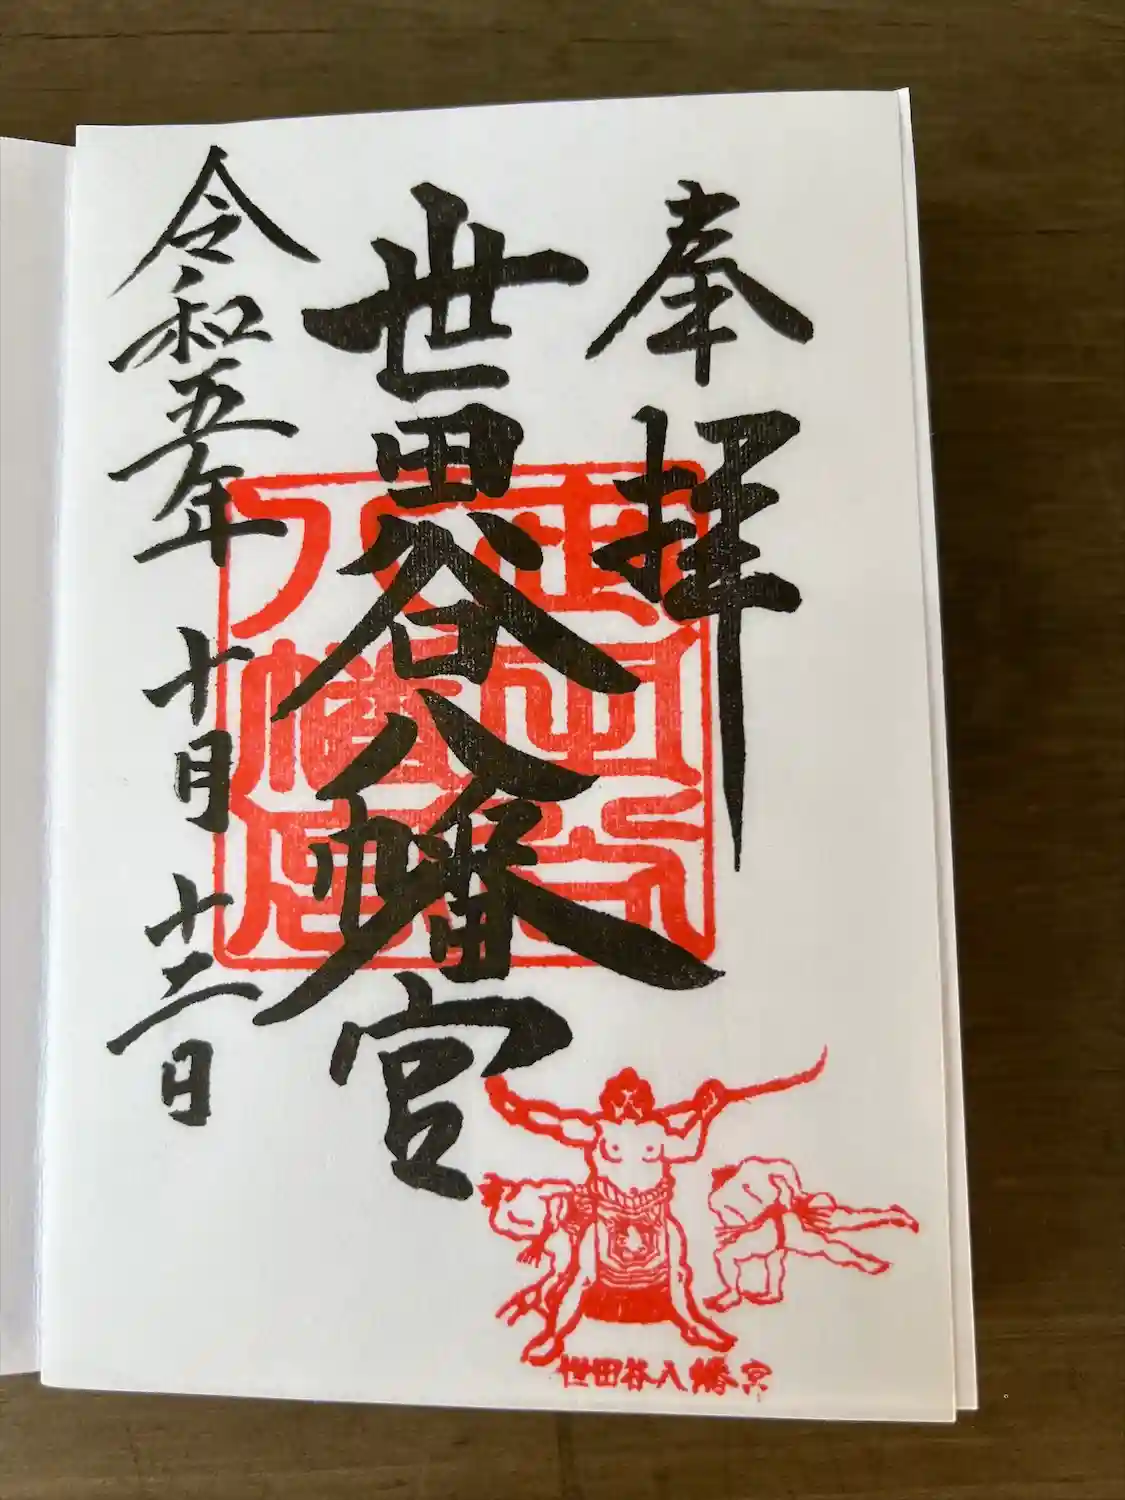 奉拝
世田谷八幡宮
令和五年 十月 十二日
世田谷八幡宮
世田谷八幡宮